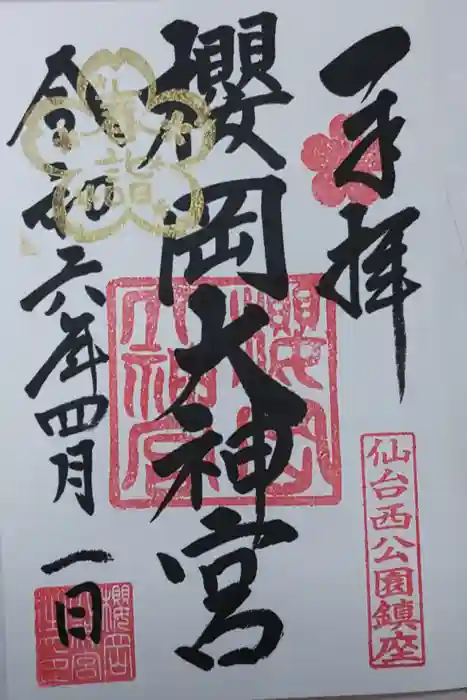 奉拝
仙台西公園鎮座
櫻岡大神宮
櫻岡大神宮
春詣
令和六年四月一日